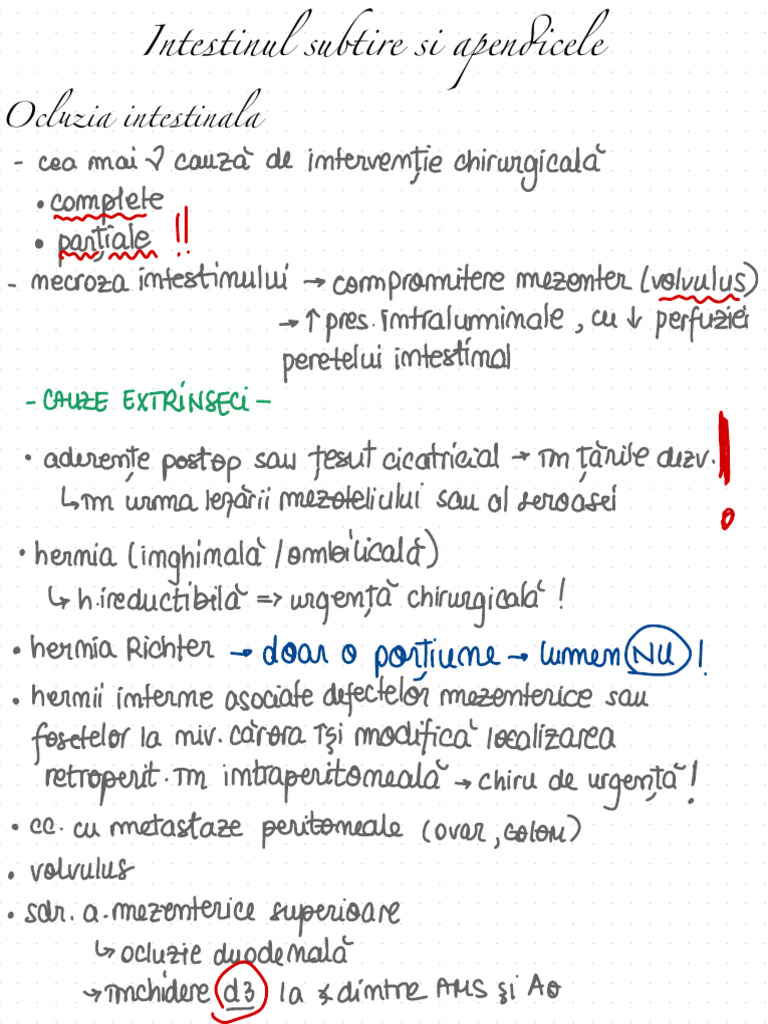 Intestinul subtire si apendicele
Ocluzia intestinala
- cea mai √ cauză de intervenție chirurgicală
• complete
• parțiale !!
- necroza intestinului → compromitere mezenter (volvulus)
→ ↑ pres. intraluminale, cu ↓ perfuziei
peretelui intestinal
- CAUZE EXTRINSECI -
• aderențe postop sau țesut cicatricial → în țările dezv. !
↳ în urma lezării mezoteliului sau al seroasei
• hernia (inghinală / ombilicală)
↳ h. ireductibilă => urgență chirurgicală !
• hernia Richter → doar o porțiune → lumen NU !
• hernii interne asociate defectelor mezenterice sau
fosetelor la niv. cărora își modifică localizarea
retroperit. în intraperitoneală → chiru de urgență !
• cc. cu metastaze peritoneale (ovar, colon)
• volvulus
• sdr. a. mezenterice superioare
↳ ocluzie duodenală
→ închidere d3 la ∡ dintre AMS și Ao